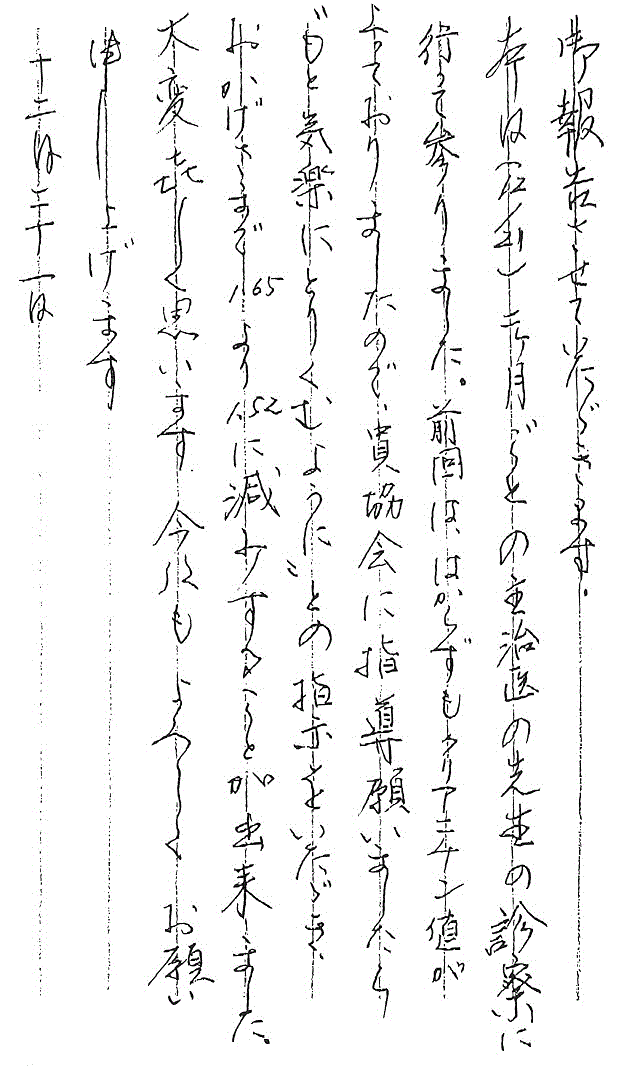 御報告させていただきます。
本日(12/21)二ヶ月ごとの主治医の先生の診察に
行って参りました。前回は、はからずもクリアニチン値が
上っておりましたので、貴協会に指導願いましたら
”もと気楽にとりくむように”との指示をいただき、
おかげさまで1.65より1.52に減少することが出来ました。
大変喜しく思います 今後もよろしくお願い
申し上げます
十二月二十一日